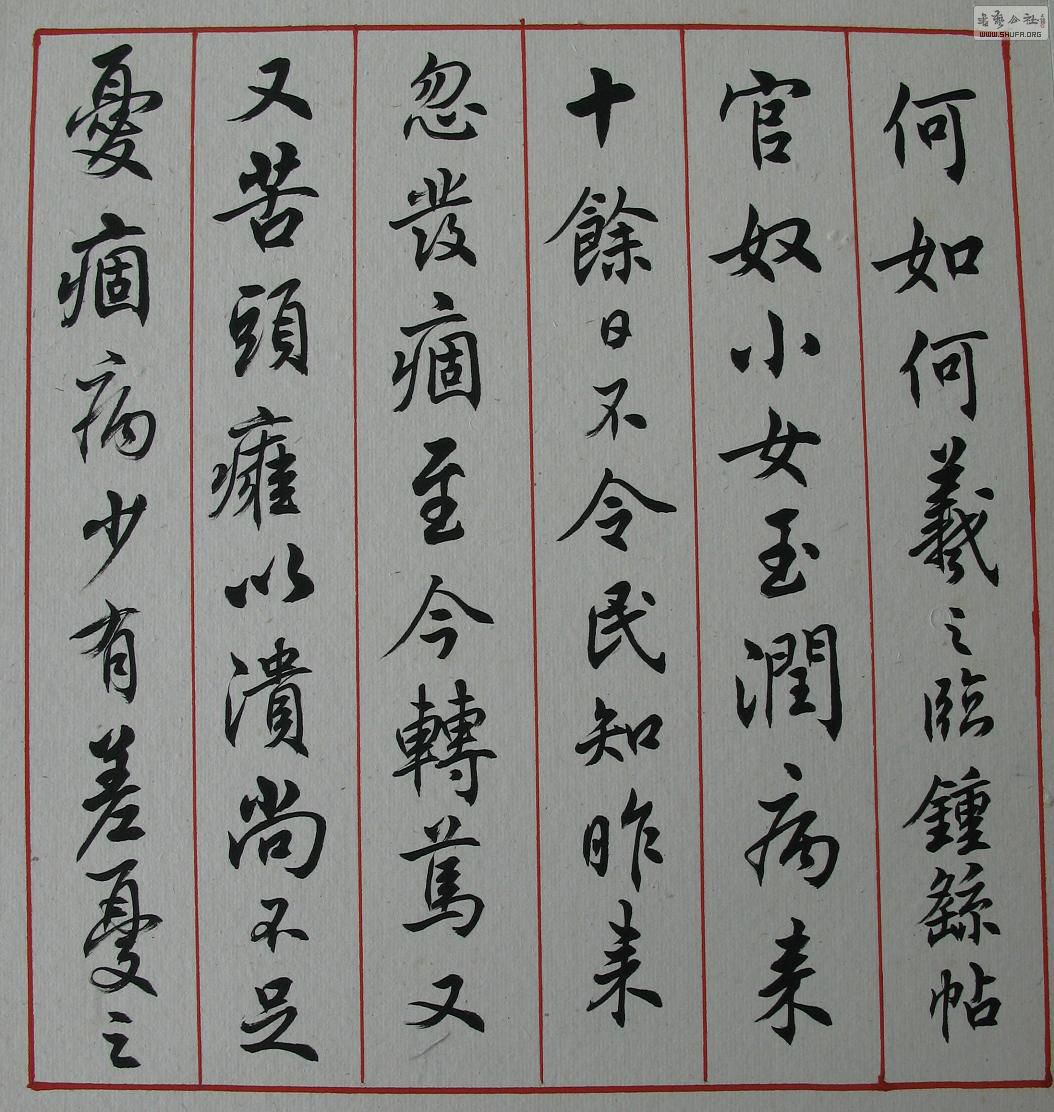 何如何羲之臨鍾繇帖
官奴小女玉潤病来
十餘日不令民知昨来
忽發痼至今轉篤又
又苦頭癰以潰尚不足
憂痼病少有差憂之
書藝公社
WWW.SHUFA.ORG